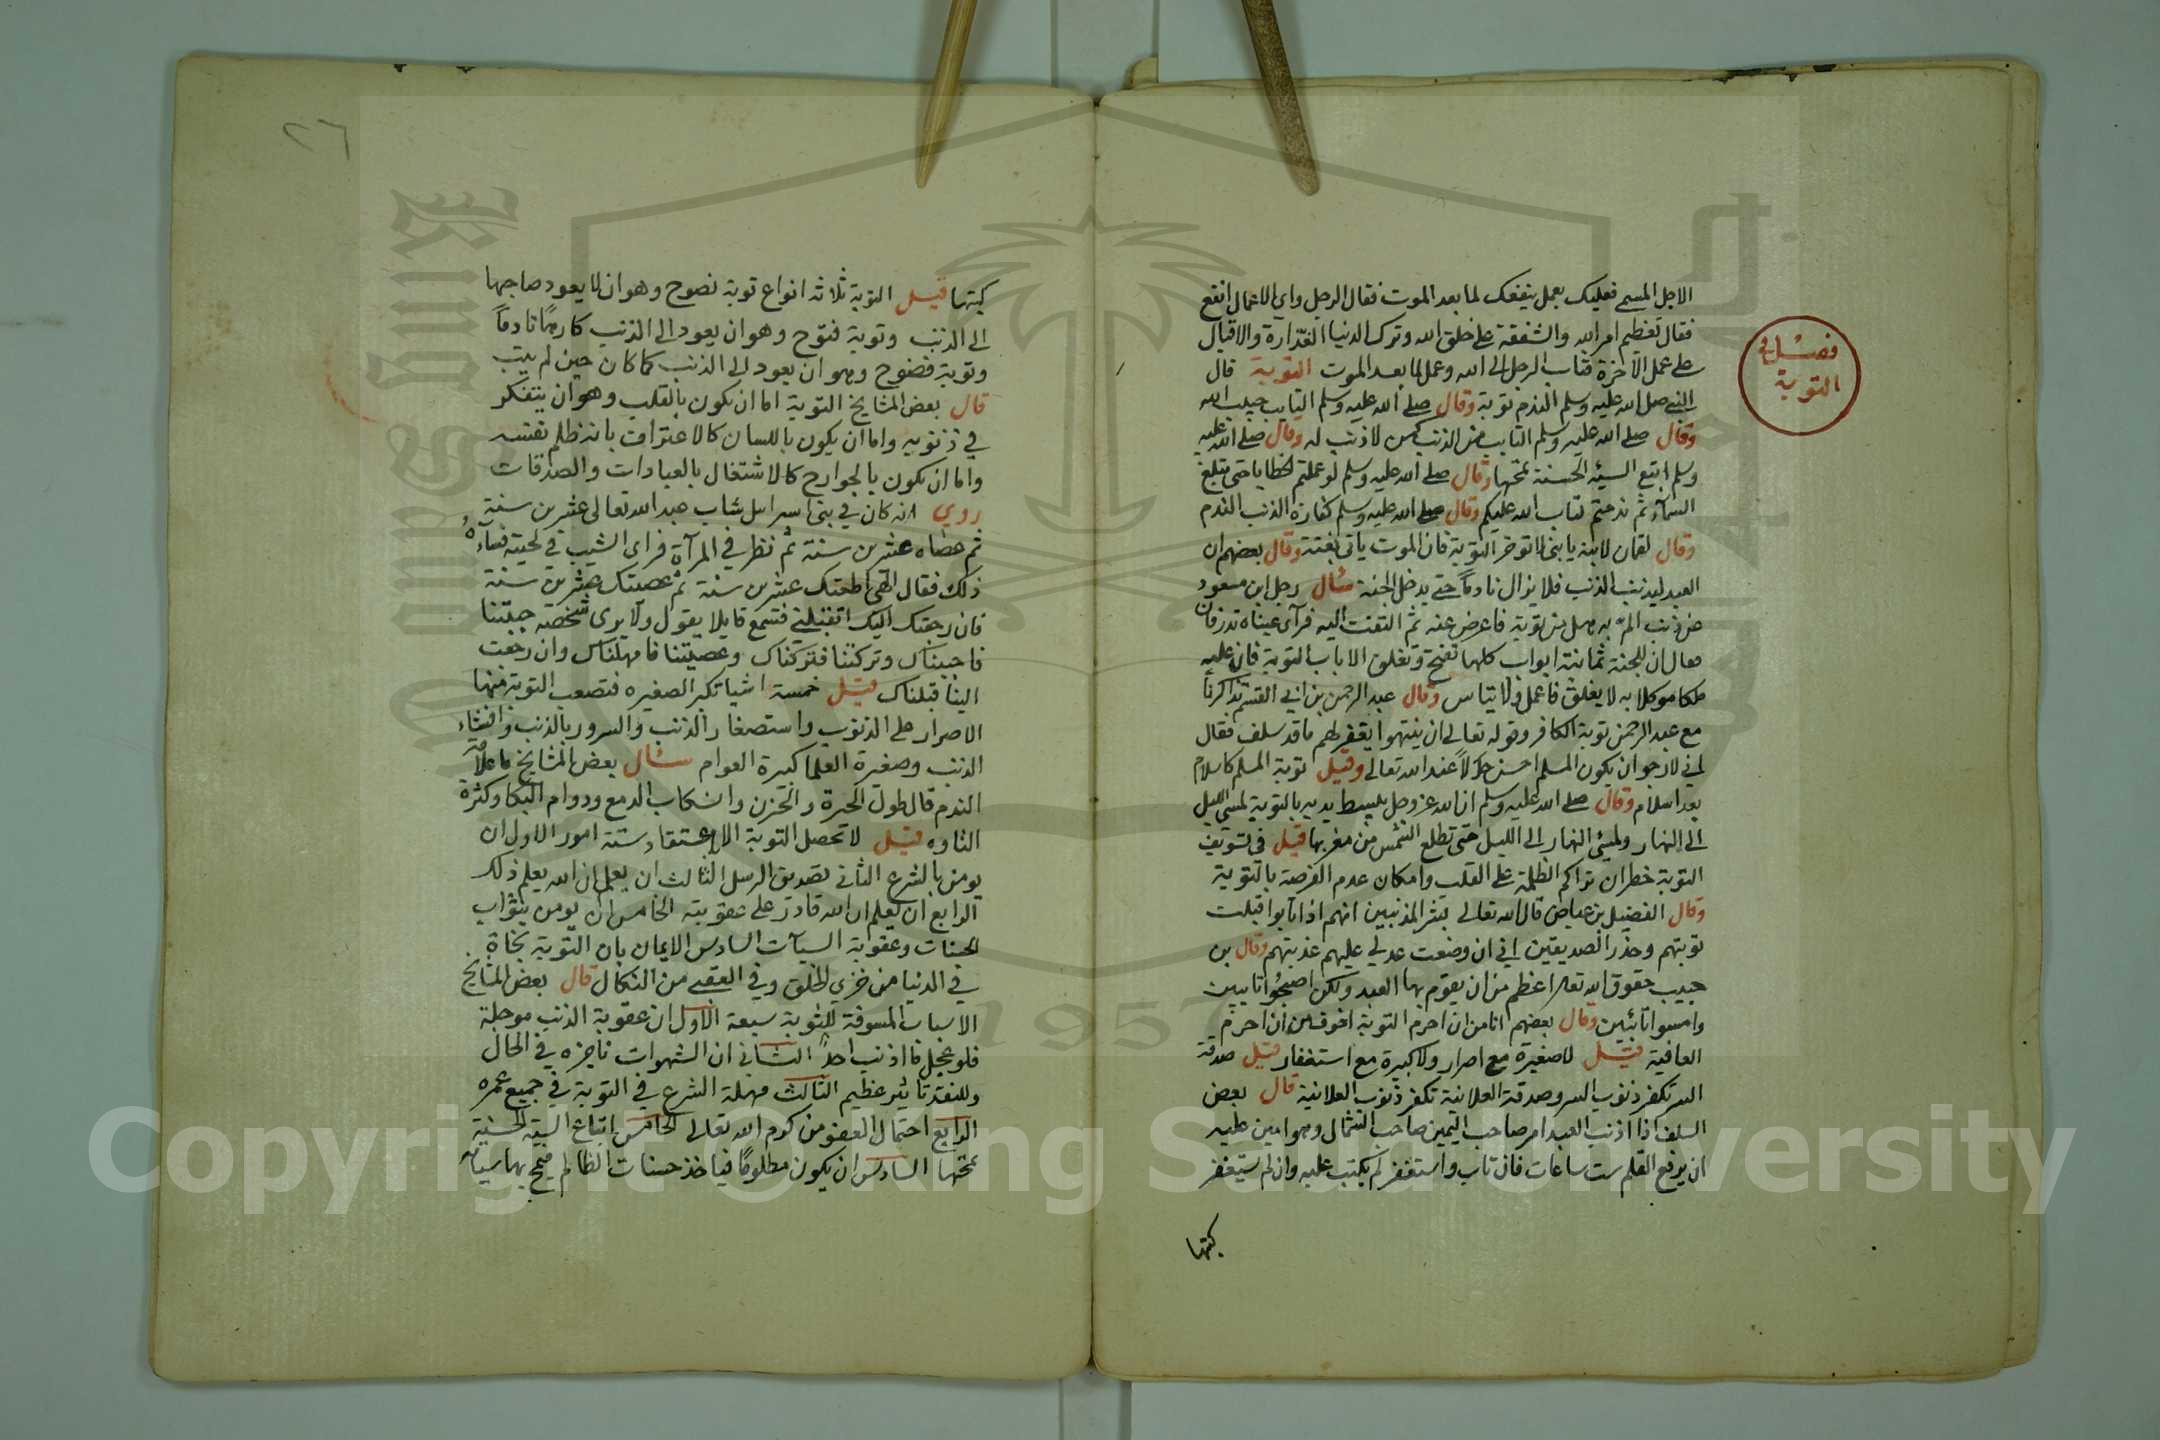 فصل في
التوبة
الاجل المسمى فعليك بعمل ينفعك لما بعد الموت فقال الرجل واي الاعمال انفع
فقال تعظيم امر الله والشفقة على خلق الله وترك الدنيا الغدارة والاقبال
على عمل الآخرة فتاب الرجل الى الله وعمل لما بعد الموت التوبة قال
النبي صلى الله عليه وسلم الندم توبة وقال صلى الله عليه وسلم التايب حبيب الله
وقال صلى الله عليه وسلم التايب من الذنب كمن لا ذنب له وقال صلى الله عليه
وسلم اتبع السيئه الحسنة تمحها وقال صلى الله عليه وسلم لو عملتم الخطايا حتى تبلغ
السمآء ثم ندمتم لتاب الله عليكم وقال صلى الله عليه وسلم كفارة الذنب الندم
وقال لقمان لابنه يا بنى لا توخر التوبة فان الموت ياتى بغتة وقال بعضهم ان
العبد ليذنب الذنب فلا يزال نادماً حتى يدخل الجنة سُال رجل ابن مسعود
عن ذنب المّ به هل من توبة فاعرض عنه ثم التفت اليه فرآى عيناه تذرفان
فقال ان للجنة ثمانية ابواب كلها تفتح وتغلق الا باب التوبة فان عليه
ملكا موكلا به لا يغلق فاعمل ولا تياس وقال عبد الرحمن بن ابى القسم تذاكرنا
مع عبد الرحمن توبة الكافر وقوله تعالى ان ينتهوا يغفر لهم ما قد سلف فقال
انى لارجو ان يكون المسلم احسن حالاً عند الله تعالى وقيل توبة المسلم كاسلام
بعد اسلام وقال صلى الله عليه وسلم ان الله عز وجل يبسط يديه بالتوبة لمسى الليل
الى النهار ولمسئ النهار الى الليل حتى تطلع الشمس من مغربها قيل في تسويف
التوبة خطران تراكم الظلمة على القلب وامكان عدم الفرصة بالتوبة
وقال الفضيل بن عياض قال الله تعالى بشر المذنبين انهم اذا تابوا قبلت
توبتهم وحذر الصديقين انى ان وضعت عدلى عليهم عذبتهم وقال بن
حبيب حقوق الله تعالى اعظم من ان يقوم بها العبد ولكن اصبحُوا تايبين
وامسوا تائبين وقال بعضهم انا من ان احرم التوبة اخوف من ان احرم
العافية قيل لا صغيرة مع اصرار ولا كبيرة مع استغفار قيل صدقة
السر تكفر ذنوب السر وصدقة العلانية تكفر ذنوب العلانية قال بعض
السلف اذا اذنب العبد امر صاحب اليمين صاحب الشمال وهو امين عليه
ان يرفع القلم ست ساعات فان تاب واستغفر لم يكتب عليه وان لم يستغفر
كتبها
٢٦
كتبها قيل التوبة ثلاثه انواع توبة نصوح وهو ان لا يعود صاحبها
الى الذنب وتوبة فتوح وهو ان يعود الى الذنب كارهاً نادماً
وتوبة فضوح وهو ان يعود الى الذنب كما كان حين لم يتب
قال بعض المشايخ التوبة اما ان تكون بالقلب وهو ان يتفكر
في ذنوبه واما ان يكون باللسان كالاعتراف بانه ظلم نفسه
واما ان تكون بالجوارح كالاشتغال بالعبادات والصدقات
روي انه كان في بنى اسراىل شاب عبد الله تعالى عشرين سنة
ثم عصاه عشرين سنة ثم نظر في المرآة فراى الشيب في لحيته فسآءهُ
ذلك فقال الهى اطعتك عشرين سنة ثم عصيتك عشرين سنة
فان رجعت اليك اتقبلنى فسمع قايلا يقول ولا يرى شخصه جيتنا
فاحببناك وتركتنا فتركناك وعصيتنا فامهلناك وان رجعت
الينا قبلناك قيل خمسة اشيا تكبر الصغيره فتصعب التوبة منها
الاصرار على الذنوب واستصغار الذنب والسرور بالذنب وافشاء
الذنب وصغيرة العلما كبيرة العوام سُال بعض المشايخ ما علامة
الندم قال طول الحسرة والحزن وانسكاب الدمع ودوام البكا وكثرة
التاوه قيل لا تحصل التوبة الا باعتقاد ستة امور الاول ان
يومن بالشرع الثاني تصديق الرسل الثالث ان يعلم ان الله يعلم ذلك
الرابع ان يعلم ان الله قادر على عقوبته الخامس ان يومن بثواب
الحسنات وعقوبة السيآت السادس الايمان بان التوبة نجاة
في الدنيا من خزي الخلق وفي العقبى من النكال قال بعض المشايخ
الاسباب المسوفة للتوبة سبعة الاول ان عقوبة الذنب موجلة
فلو عجل ما اذنب احدٌ الثاني ان الشهوات ناجزه في الحال
وللنقد تاثير عظيم الثالث مهلة الشرع في التوبة في جميع عمره
الرابع احتمال العفو من كرم الله تعالى الخامس اتباع السيئة الحسنة
تمحها السادس ان يكون مظلومًا فياخذ حسنات الظالم فيمحى بها سيآته
King Saud University
1957
Copyright © King Saud University